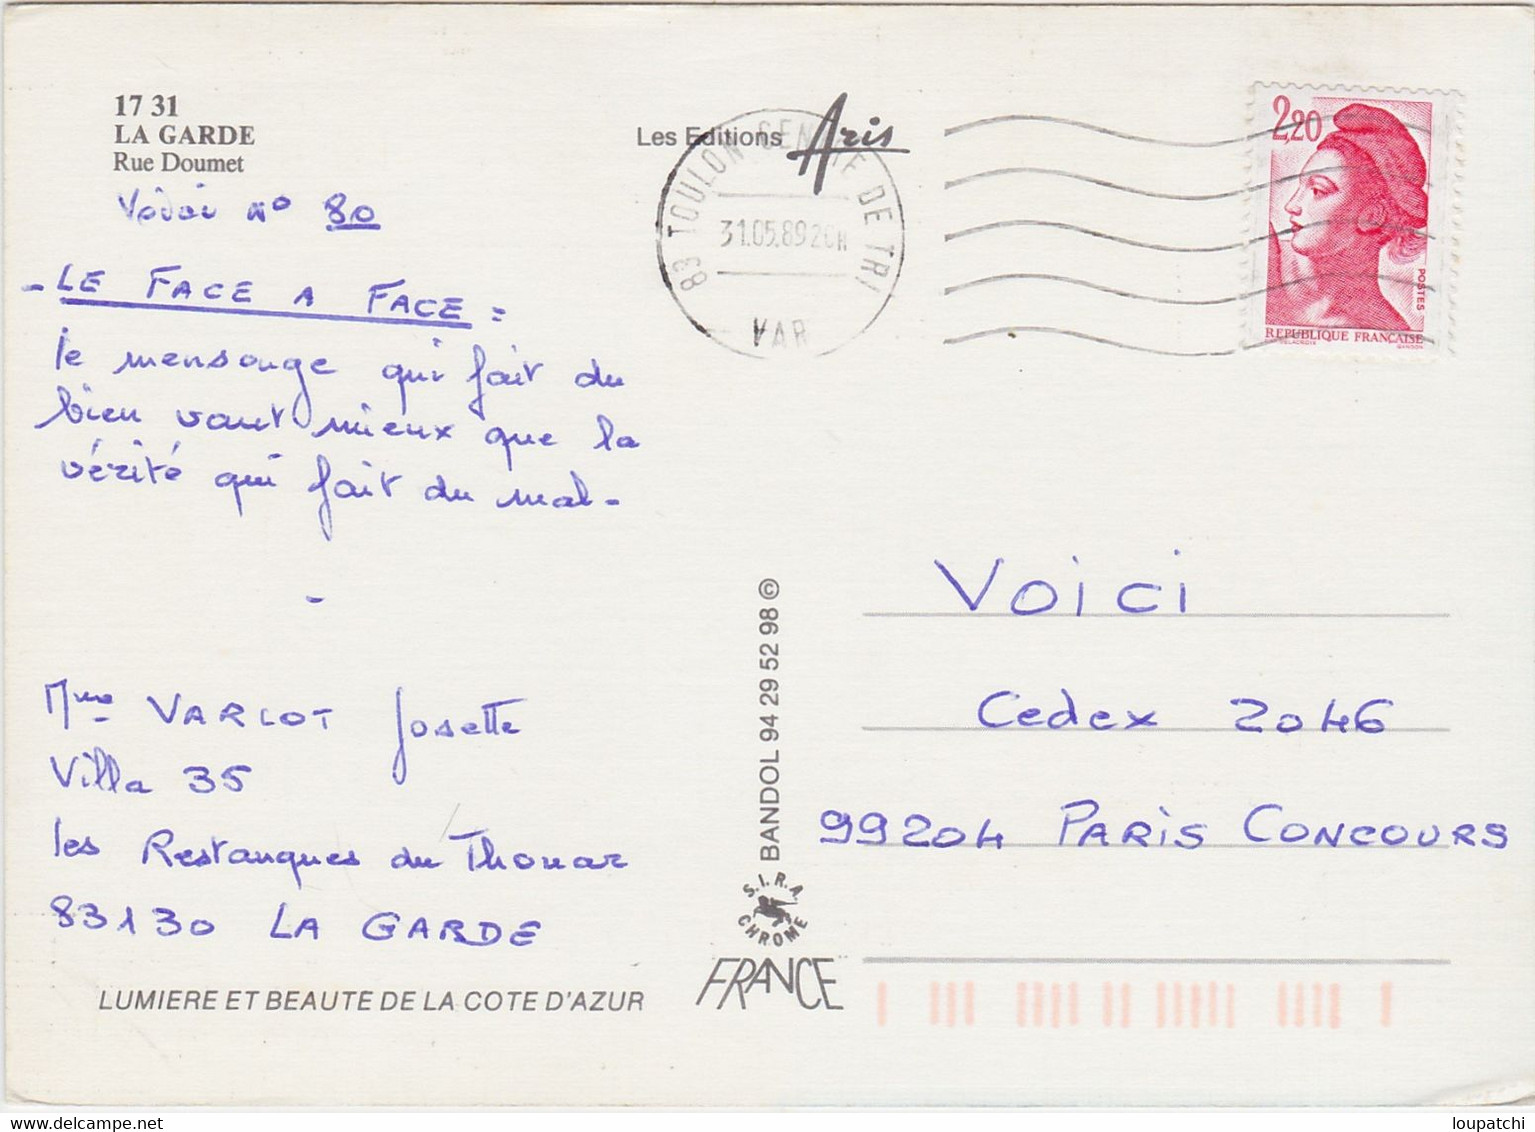 17 31
LA GARDE
Rue Doumet
Voici n° 80
- LE FACE A FACE =
le mensonge qui fait du
bien vaut mieux que la
vérité qui fait du mal -
-
Mme VARLOT Josette
Villa 35
les Restanques du Thouar
83130 LA GARDE
LUMIERE ET BEAUTE DE LA COTE D'AZUR
Les Editions Aris
83 TOULON CENTRE DE TRI
31.05.89 20H
VAR
2,20
POSTES
REPUBLIQUE FRANÇAISE
DELACROIX GANDON
BANDOL 94 29 52 98 ©
S.I.R.A.
CHROME
FRANCE
VOICI
Cedex 2046
99204 PARIS CONCOURS
delcampe.net
loupatchi